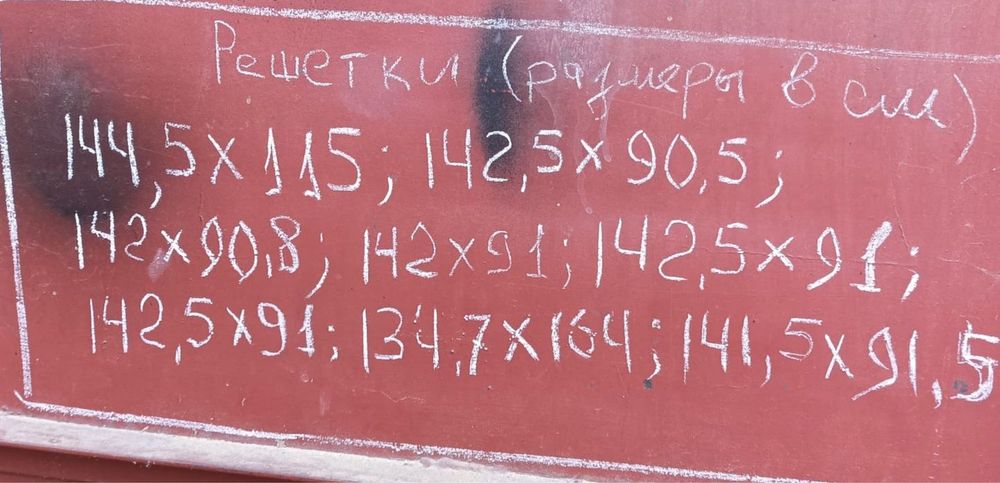 Решетки (размеры в см)
144,5х115; 142,5х90,5;
142х90,8; 142х91; 142,5х91;
142,5х91; 134,7х164; 141,5х91,5